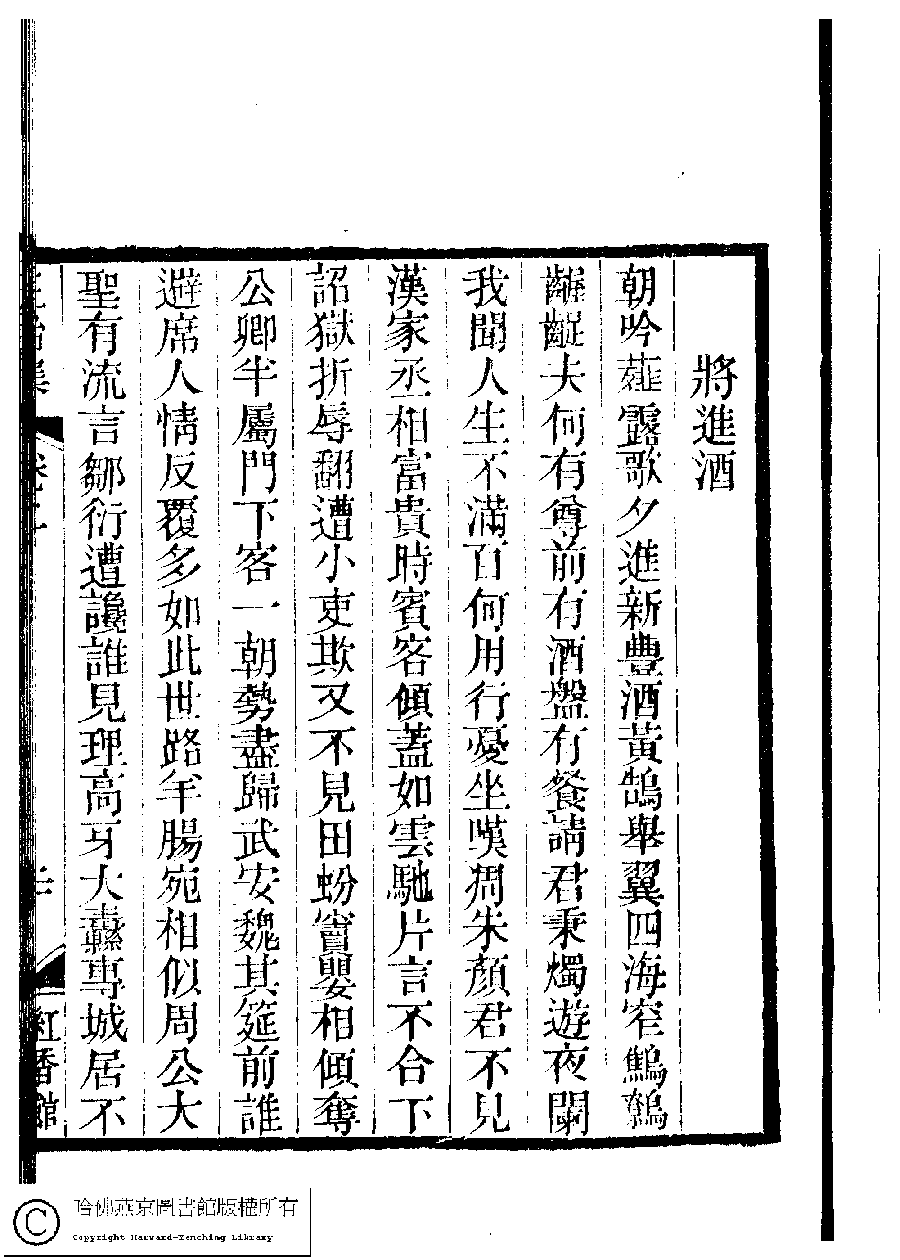 將進酒
朝吟薤露歌夕進新豐酒黃鵠舉翼四海窄鷦鷯
齷齪夫何有尊前有酒盤有餐請君秉燭遊夜闌
我聞人生不滿百何用行憂坐嘆凋朱顏君不見
漢家丞相富貴時賓客傾蓋如雲馳片言不合下
詔獄折辱翻遭小吏欺又不見田蚡竇嬰相傾奪
公卿半屬門下客一朝勢盡歸武安魏其筵前誰
避席人情反覆多如此世路羊腸宛相似周公大
聖有流言鄒衍遭讒誰見理高牙大纛專城居不
紅香館
哈佛燕京圖書館版權所有
Copyright Harvard-Yenching Library